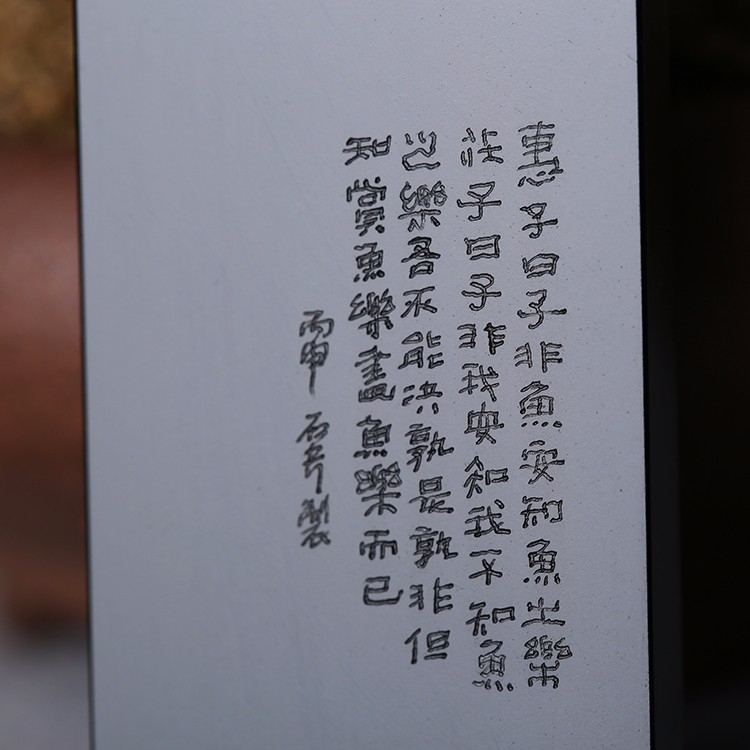 惠子曰子非魚安知魚之樂
莊子曰子非我安知我不知魚
之樂吾不能決孰是孰非但
知賞魚樂畫魚樂而已
丙申 石 製